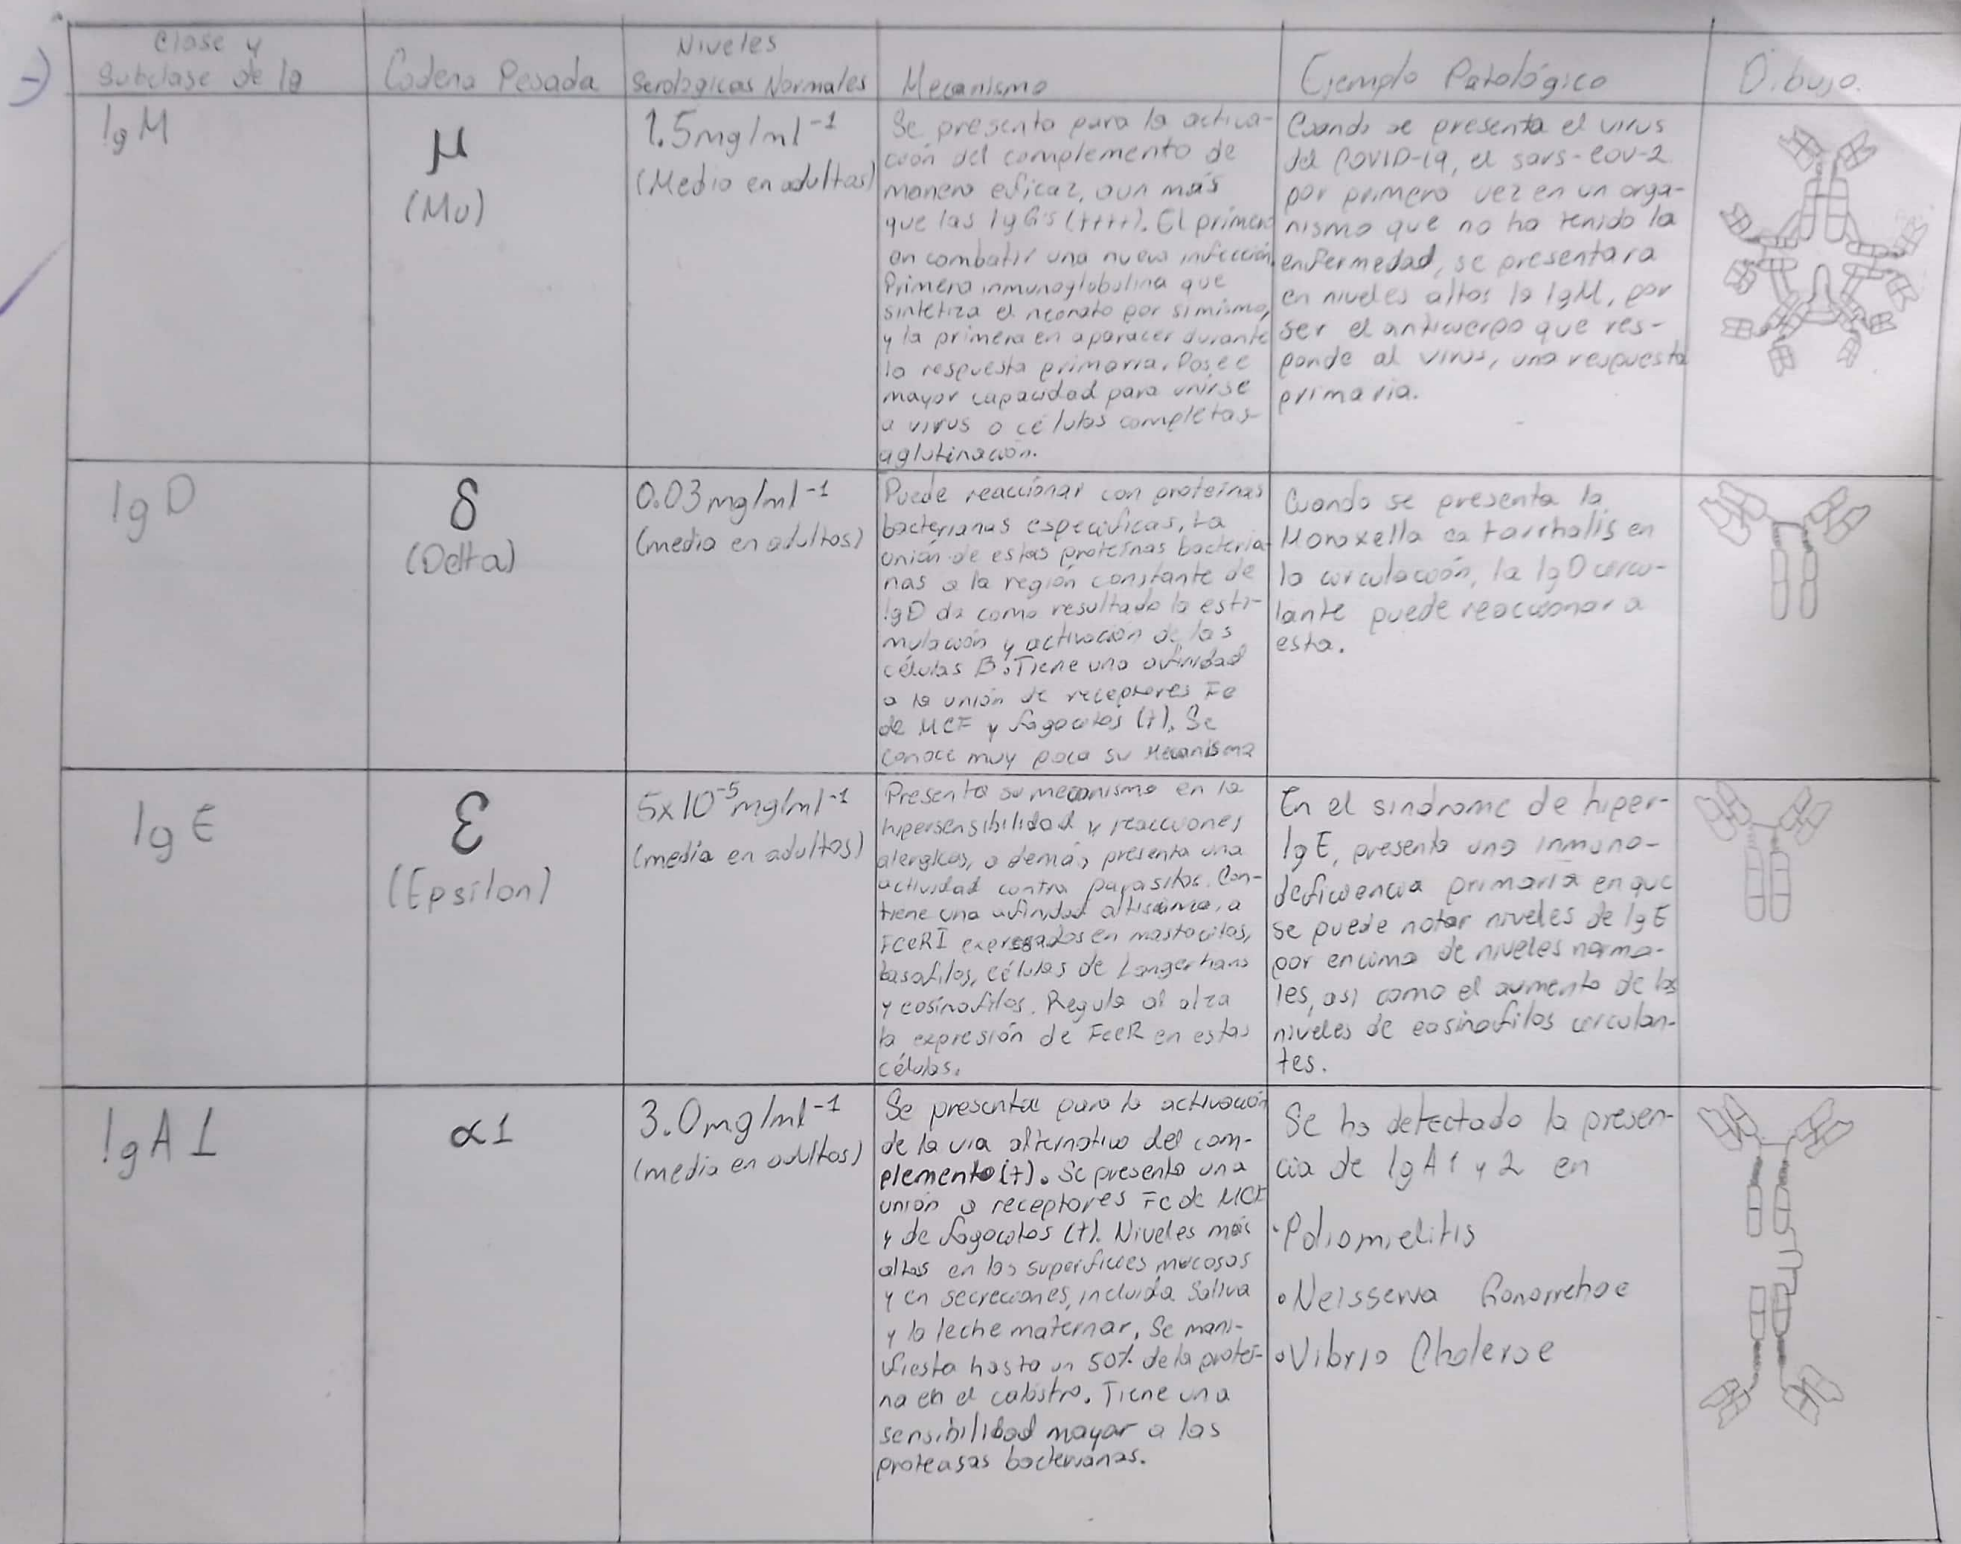 Clase y
Subclase de Ig
Cadena Pesada
Niveles
Serológicos Normales
Mecanismo
Ejemplo Patológico
Dibujo.
IgM
μ
(Mu)
1.5mg/ml⁻¹
(Media en adultos)
Se presenta para la activa-
ción del complemento de
manera eficaz, aun más
que las IgG's (++++). El primero
en combatir una nueva infección.
Primera inmunoglobulina que
sintetiza el neonato por si mismo,
y la primera en aparacer durante
la respuesta primaria. Posee
mayor capacidad para unirse
a virus o células completas
aglutinación.
Cuando se presenta el virus
del COVID-19, el sars-cov-2
por primera vez en un orga-
nismo que no ha tenido la
enfermedad, se presentara
en niveles altos la IgM, por
ser el anticuerpo que res-
ponde al virus, una respuesta
primaria.
IgD
δ
(Delta)
0.03mg/ml⁻¹
(media en adultos)
Puede reaccionar con proteínas
bacterianas especificas, La
unión de estas proteínas bacteria-
nas a la región constante de
IgD da como resultado la esti-
mulación y activación de las
células B. Tiene una afinidad
a la unión de receptores Fc
de MCF y fagocitos (+). Se
conoce muy poco su Mecanismo
Cuando se presenta la
Moraxella catarrhalis en
la circulación, la IgD circu-
lante puede reaccionar a
esta.
IgE
ε
(Epsílon)
5x10⁻⁵mg/ml⁻¹
(media en adultos)
Presenta su mecanismo en la
hipersensibilidad y reacciones
alergicas, a demás presenta una
actividad contra parasitos. Con-
tiene una afinidad altisima, a
FCeRI expresados en mastocitos,
basofilos, células de Langerhans
y eosinofilos. Regula al alza
la expresión de FceR en estas
células.
En el sindrome de hiper-
IgE, presenta una inmuno-
deficiencia primaria en que
se puede notar niveles de IgE
por encima de niveles norma-
les, asi como el aumento de los
niveles de eosinofilos circulan-
tes.
IgA1
α1
3.0mg/ml⁻¹
(media en adultos)
Se presenta para la activación
de la via alternativa del com-
plemento (+). Se presenta una
unión a receptores Fc de MCF
y de fagocitos (+). Niveles más
altos en las superficies mucosas
y en secreciones, incluida Saliva
y la leche maternar, Se mani-
fiesta hasta un 50% de la protei-
na en el calostro. Tiene una
sensibilidad mayor a las
proteasas bacterianas.
Se ha detectado la presen-
cia de IgA1 y 2 en
•Poliomielitis
•Neisseria Gonorrehoe
•Vibrio Cholerae